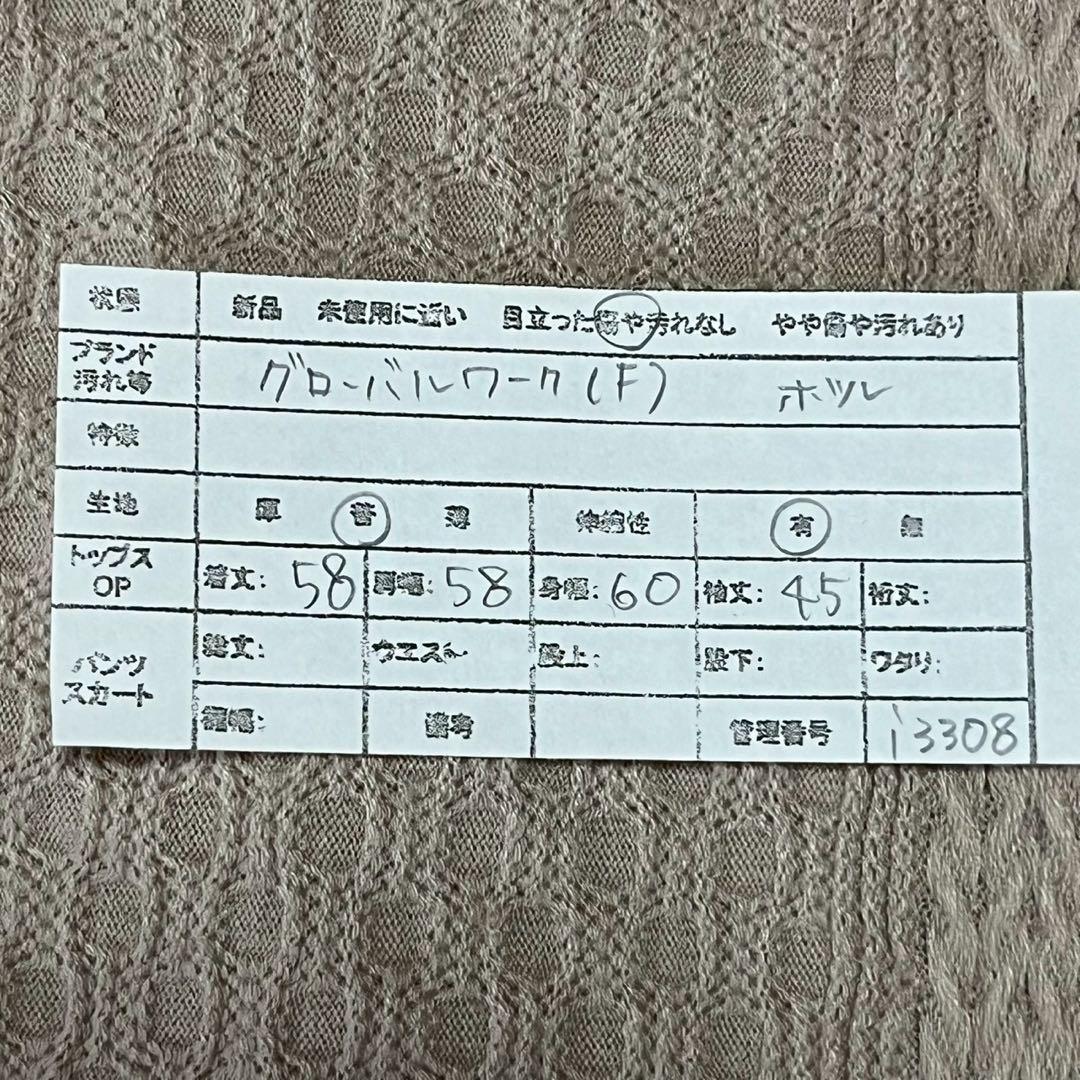 状態 新品 未使用に近い 目立った傷や汚れなし やや傷や汚れあり
ブランド
汚れ等 グローバルワーク(F) ホツレ
特徴
生地 厚 普 薄 伸縮性 有 無
トップス
OP 着丈: 58 肩幅: 58 身幅: 60 袖丈: 45 裄丈:
パンツ
スカート 総丈: ウエスト 股上: 股下: ワタリ:
裾幅: 備考 管理番号 i3308